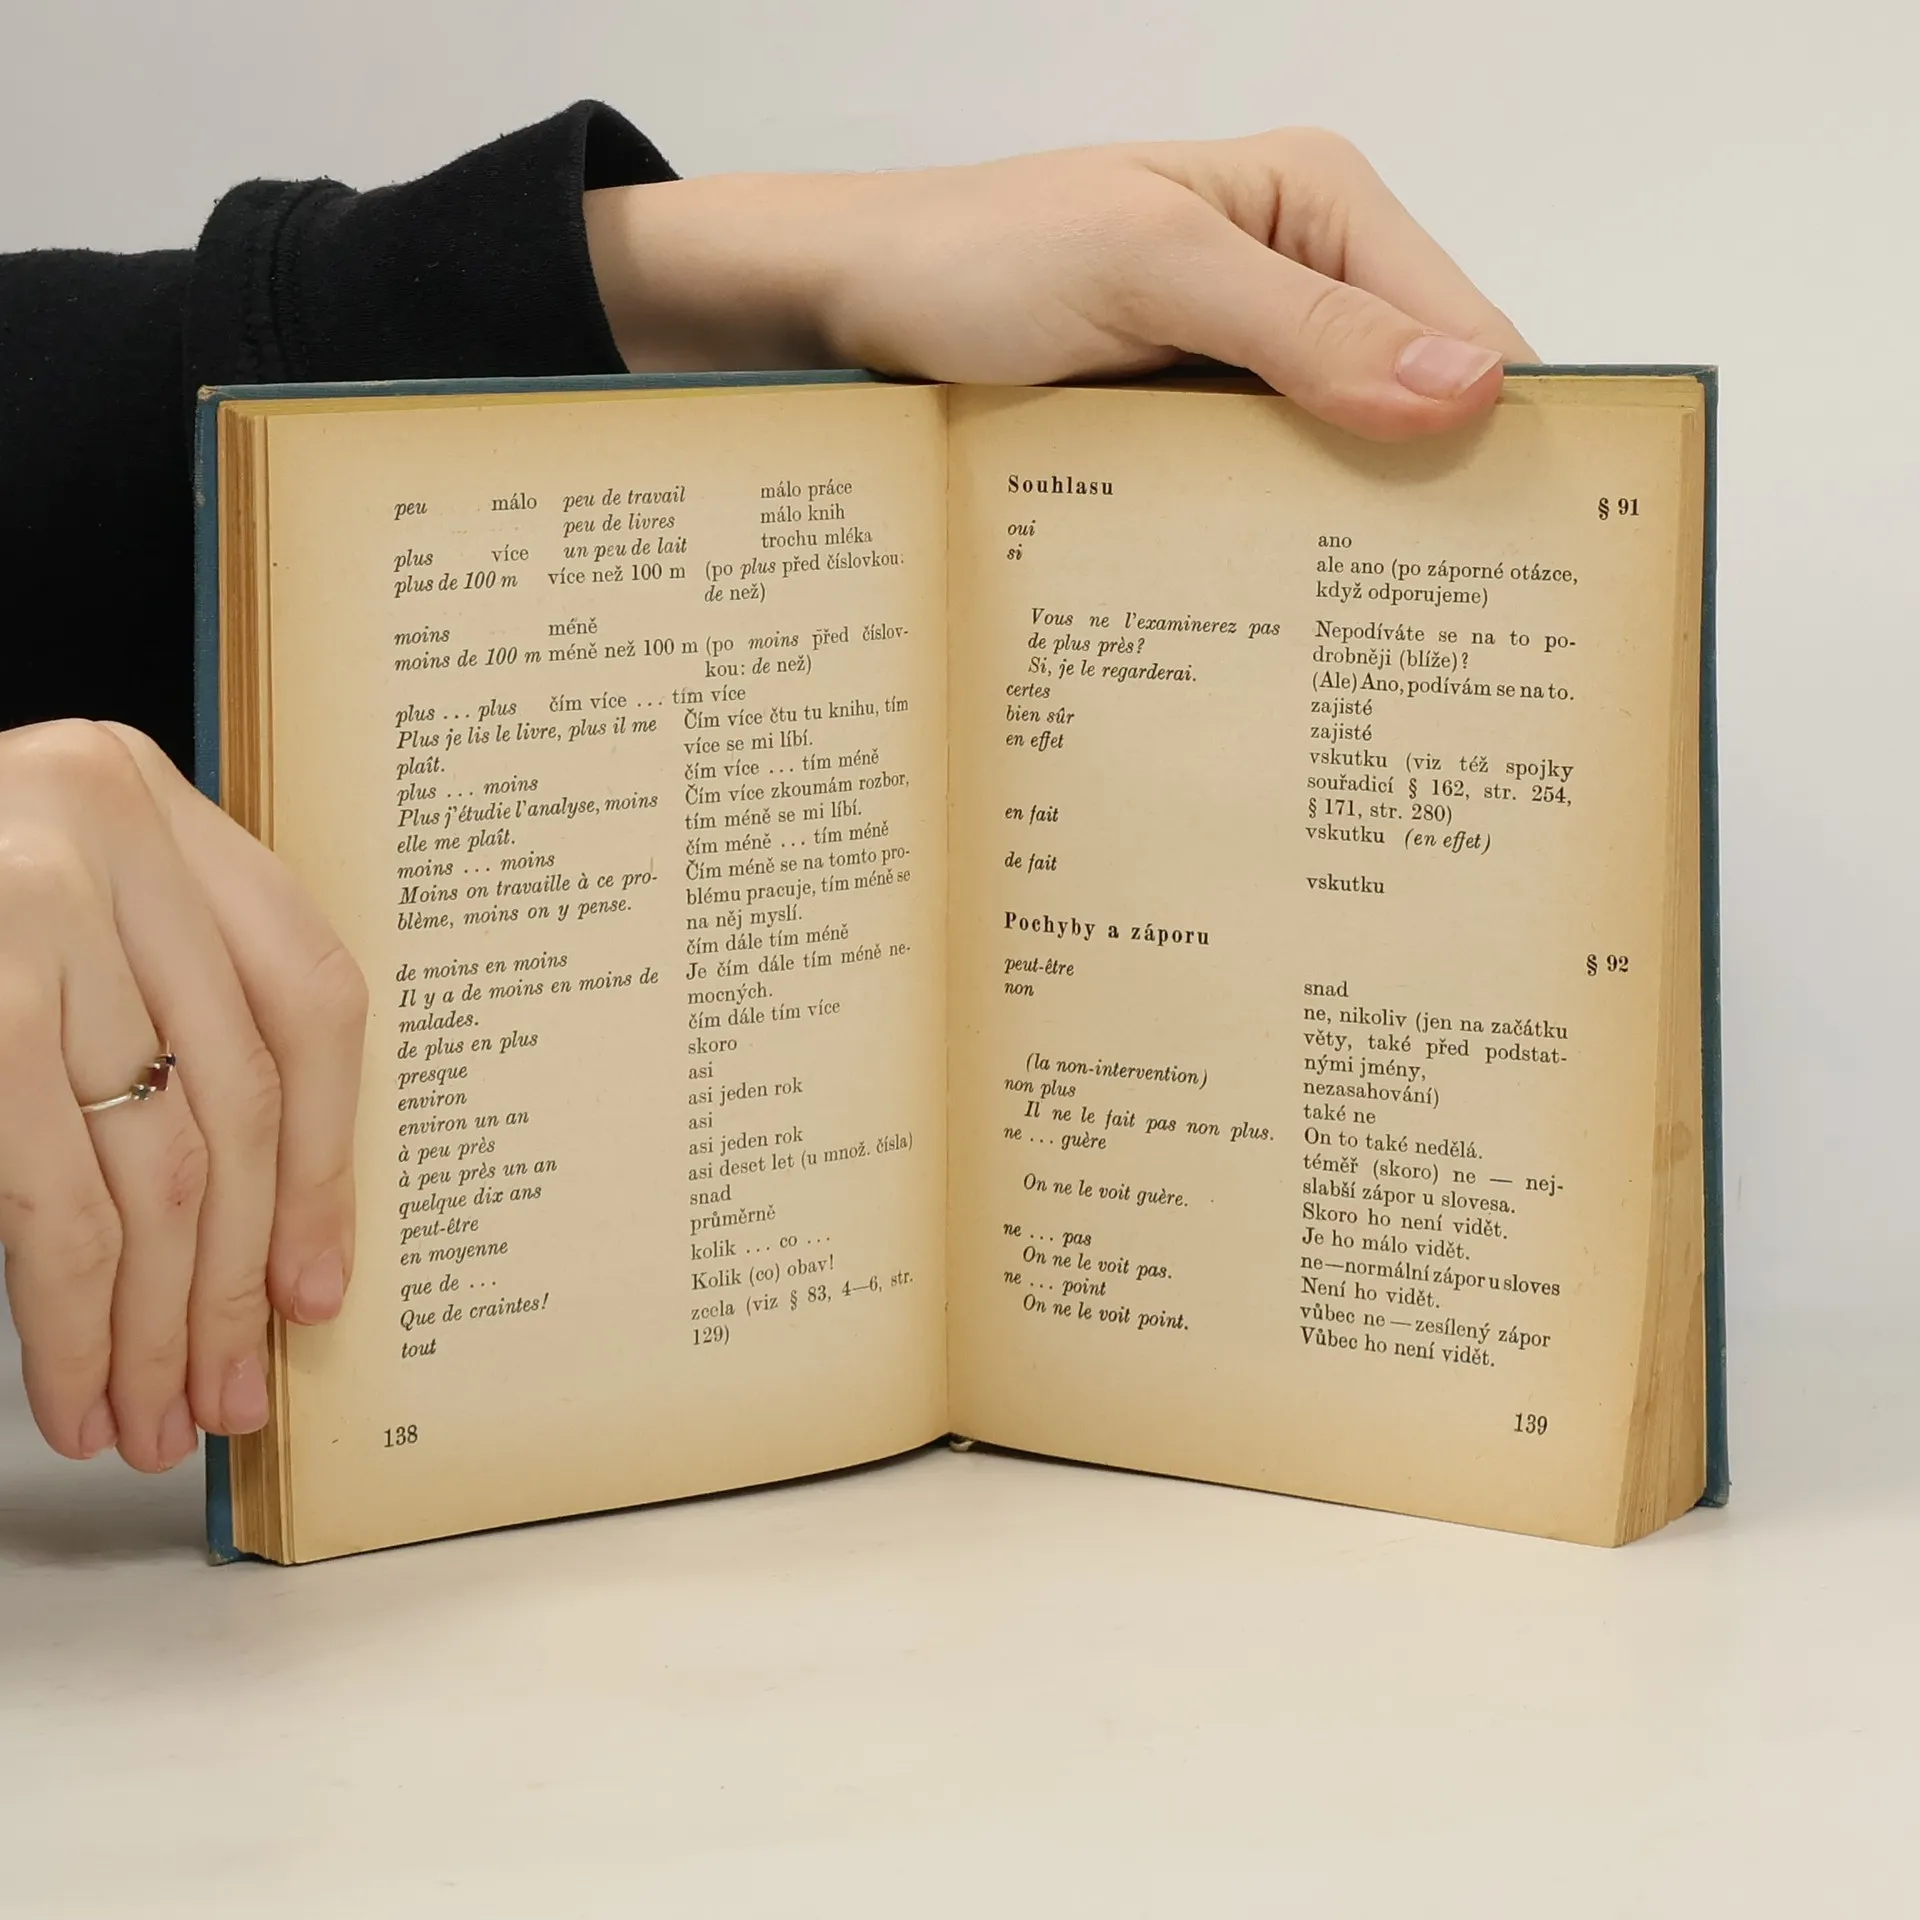 peu málo peu de travail málo práce
peu de livres málo knih
plus více un peu de lait trochu mléka
plus de 100 m více než 100 m (po plus před číslovkou:
de než)
moins méně
moins de 100 m méně než 100 m (po moins před číslov-
kou: de než)
plus ... plus čím více ... tím více
Plus je lis le livre, plus il me Čím více čtu tu knihu, tím
plaît. více se mi líbí.
plus ... moins čím více ... tím méně
Plus j'étudie l'analyse, moins Čím více zkoumám rozbor,
elle me plaît. tím méně se mi líbí.
moins ... moins čím méně ... tím méně
Moins on travaille à ce pro- Čím méně se na tomto pro-
blème, moins on y pense. blému pracuje, tím méně se
na něj myslí.
de moins en moins čím dále tím méně
Il y a de moins en moins de Je čím dále tím méně ne-
malades. mocných.
de plus en plus čím dále tím více
presque skoro
environ asi
environ un an asi jeden rok
à peu près asi
à peu près un an asi jeden rok
quelque dix ans asi deset let (u množ. čísla)
peut-être snad
en moyenne průměrně
que de ... kolik ... co ...
Que de craintes! Kolik (co) obav!
tout zcela (viz § 83, 4—6, str.
129)
138
Souhlasu § 91
oui ano
si ale ano (po záporné otázce,
když odporujeme)
Vous ne l'examinerez pas Nepodíváte se na to po-
de plus près? drobněji (blíže)?
Si, je le regarderai. (Ale) Ano, podívám se na to.
certes zajisté
bien sûr zajisté
en effet vskutku (viz též spojky
souřadicí § 162, str. 254,
§ 171, str. 280)
en fait vskutku (en effet)
de fait vskutku
Pochyby a záporu § 92
peut-être snad
non ne, nikoliv (jen na začátku
věty, také před podstat-
nými jmény,
(la non-intervention) nezasahování)
non plus také ne
Il ne le fait pas non plus. On to také nedělá.
ne ... guère téměř (skoro) ne — nej-
slabší zápor u slovesa.
On ne le voit guère. Skoro ho není vidět.
Je ho málo vidět.
ne ... pas ne—normální zápor u sloves
On ne le voit pas. Není ho vidět.
ne ... point vůbec ne — zesílený zápor
On ne le voit point. Vůbec ho není vidět.
139